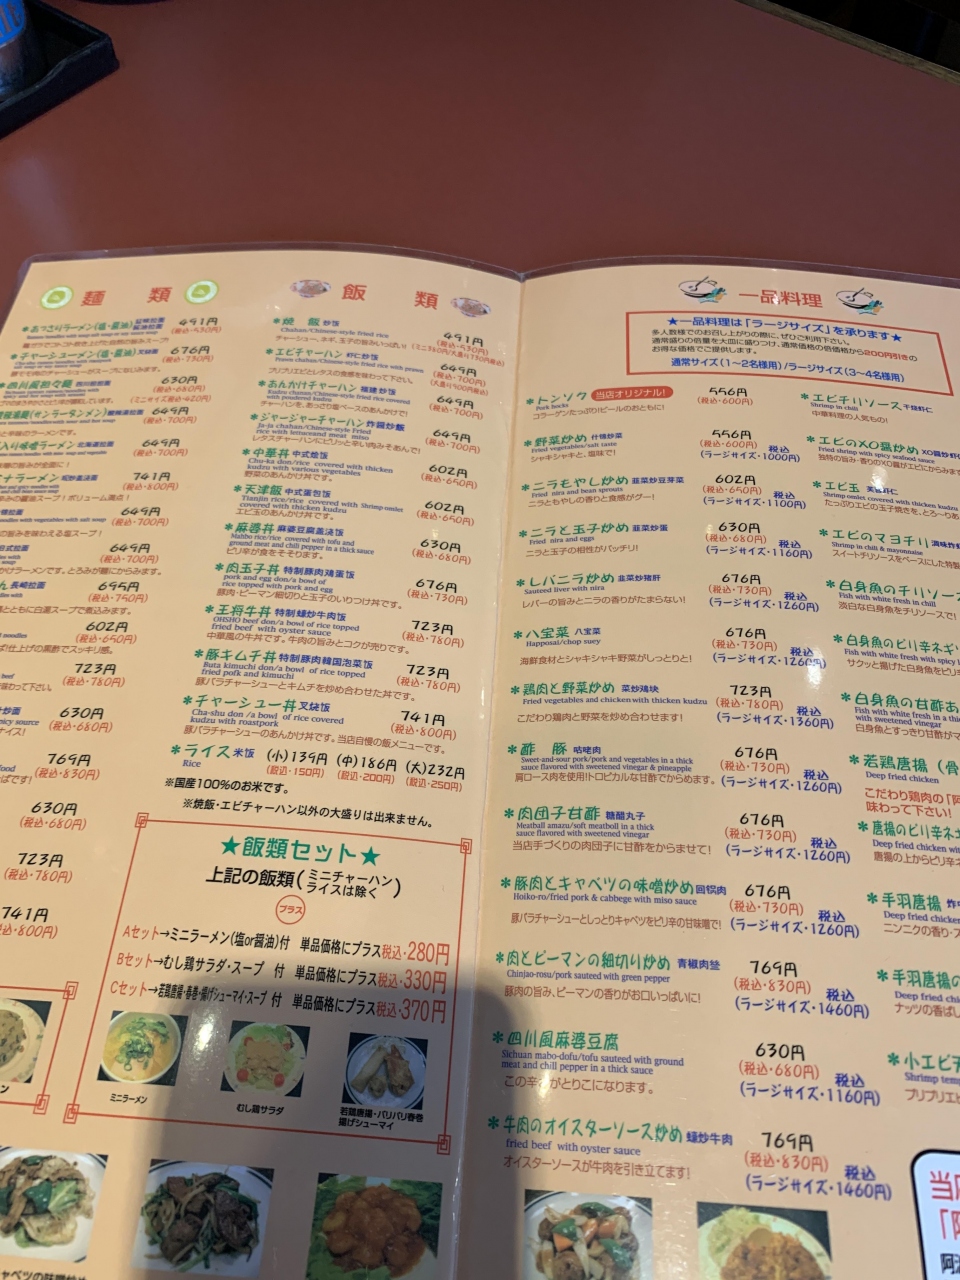 麺 類
あっさりラーメン(塩・醤油)
491円
(税込・530円)
チャーシューメン(塩・醤油) 叉焼面
676円
(税込・730円)
四川風担々麺
630円
(税込・680円)
(ミニサイズ税込・420円)
(サンラータンメン)
649円
(税込・700円)
入り味噌ラーメン
649円
(税込・700円)
ナラーメン
741円
(税込・800円)
649円
(税込・700円)
noodles with vegetables with salt soup
の旨みを味わえる塩スープ!
649円
(税込・700円)
かけラーメンです。とろみが麺にからみます。
ん 長崎拉面
695円
(税込・750円)
るとともに白湯スープで煮込みます。
602円
(税込・650円)
仕上げの黒酢でスッキリ感。
723円
(税込・780円)
630円
(税込・680円)
769円
(税込・830円)
630円
(税込・680円)
723円
(税込・780円)
741円
(税込・800円)
飯 類
＊焼 飯 炒饭
491円
(税込・530円)
Chahan/Chinese-style fried rice
チャーシュー、ネギ、玉子の旨みいっぱい!
＊エビチャーハン 虾仁炒饭
649円
(税込・700円)
プリプリエビとレタスの食感を味わって下さい。
＊あんかけチャーハン 福建炒饭
649円
(税込・700円)
Kudzu chahan/Chinese-style fried rice covered
with powdered kudzu
チャーハンを、あっさり塩ベースのあんかけで!
＊ジャージャーチャーハン 炸醤炒飯
649円
(税込・700円)
Ja-ja chahan/Chinese-style Fried
rice with lettuceand meat miso
レタスチャーハンにピリッと辛い肉みそあんで!
＊中華丼 中式烩饭
602円
(税込・650円)
Chu-ka don/rice covered with thicken
kudzu with various vegetables
野菜のあんかけ丼です。
＊天津飯 中式蛋包饭
602円
(税込・650円)
Tianjin rice/rice covered with Shrimp omlet
covered with thicken kudzu
エビ玉のあんかけ丼です。
＊麻婆丼 麻婆豆腐盖浇饭
630円
(税込・680円)
Mahbo rice/rice covered with tofu and
ground meat and chill pepper in a thick sauce
ピリ辛が食をそそります。
＊肉玉子丼 特制豚肉鸡蛋饭
676円
(税込・730円)
pork and egg don/a bowl of
rice topped with pork and egg
豚肉・ピーマン細切りと玉子のいりつけ丼です。
＊王将牛丼 特制蠔炒牛肉饭
723円
(税込・780円)
OHSHO beef don/a bowl of rice topped
fried beef with oyster sauce
中華風の牛丼です。牛肉の旨みとコクが売りです。
＊豚キムチ丼 特制豚肉韓国泡菜饭
723円
(税込・780円)
Buta kimuchi don/a bowl of rice topped
fried pofk and kimuchi
豚バラチャーシューとキムチを炒め合わせた丼です。
＊チャーシュー丼 叉烧饭
741円
(税込・800円)
Cha-shu don /a bowl of rice covered
kudzu with roastpork
豚バラチャーシューのあんかけ丼です。当店自慢の飯メニューです。
＊ライス 米饭
Rice
(小)139円 (中)186円 (大)232円
(税込・150円) (税込・200円) (税込・250円)
※国産100%のお米です。
※焼飯・エビチャーハン以外の大盛りは出来ません。
★飯類セット★
上記の飯類(ミニチャーハン
ライスは除く)
プラス
Aセット→ミニラーメン(塩or醤油)付 単品価格にプラス税込・280円
Bセット→むし鶏サラダ・スープ 付 単品価格にプラス税込・330円
Cセット→若鶏唐揚・春巻・揚げシューマイ・スープ 付 単品価格にプラス税込・370円
ミニラーメン
むし鶏サラダ
若鶏唐揚・パリパリ春巻
揚げシューマイ
一品料理
★一品料理は「ラージサイズ」を承ります★
多人数様でのお召し上がりの際に、ぜひご利用下さい。
通常盛りの倍量を大皿に盛りつけ、通常価格の倍価格から200円引きの
お得な価格でご提供します。
通常サイズ(1〜2名様用)/ラージサイズ(3〜4名様用)
＊トンソク 当店オリジナル!
556円
(税込・600円)
Pork hocks
コラーゲンたっぷり!ビールのおともに!
＊野菜炒め 什锦炒菜
556円
(税込・600円) 税込
(ラージサイズ・1000円)
Fried vegetables/salt taste
シャキシャキと、塩味で!
＊ニラもやし炒め 韮菜炒豆芽菜
602円
(税込・650円) 税込
(ラージサイズ・1100円)
Fried nira and bean sprouts
ニラともやしの香りと食感がグー!
＊ニラと玉子炒め 韮菜炒蛋
630円
(税込・680円) 税込
(ラージサイズ・1160円)
Fried nira and eggs
ニラと玉子の相性がバッチリ!
＊レバニラ炒め 韮菜炒猪肝
676円
(税込・730円) 税込
(ラージサイズ・1260円)
Sauteed liver with nira
レバーの旨みとニラの香りがたまらない!
＊八宝菜 八宝菜
676円
(税込・730円) 税込
(ラージサイズ・1260円)
Happosai/chop suey
海鮮食材とシャキシャキ野菜がしっとりと!
＊鶏肉と野菜炒め 菜炒鶏块
723円
(税込・780円) 税込
(ラージサイズ・1360円)
Fried vegetables and chicken with thicken kudzu
こだわり鶏肉と野菜を炒め合わせます!
＊酢 豚 咕咾肉
676円
(税込・730円) 税込
(ラージサイズ・1260円)
Sweet-and-sour pork/pork and vegetables in a thick
sauce flavored with sweetened vinegar & pineapple
肩ロース肉を使用!トロピカルな甘酢でからめます。
＊肉団子甘酢 糖醋丸子
676円
(税込・730円) 税込
(ラージサイズ・1260円)
Meatball amazu/soft meatboll in a thick
sauce flavored with sweetened vinegar
当店手づくりの肉団子に甘酢をからませて!
＊豚肉とキャベツの味噌炒め 回锅肉
676円
(税込・730円) 税込
(ラージサイズ・1260円)
Hoiko-ro/fried pork & cabbege with miso sauce
豚バラチャーシューとしっとりキャベツをピリ辛の甘味噌で!
＊肉とピーマンの細切り炒め 青椒肉丝
769円
(税込・830円) 税込
(ラージサイズ・1460円)
Chinjao-rosu/pork sauteed with green pepper
豚肉の旨み、ピーマンの香りがお口いっぱいに!
＊四川風麻婆豆腐
630円
(税込・680円) 税込
(ラージサイズ・1160円)
Sichuan mabo-dofu/tofu sauteed with ground
meat and chill pepper in a thick sauce
この辛さがとりこになります。
＊牛肉のオイスターソース炒め 蠔炒牛肉
769円
(税込・830円) 税込
(ラージサイズ・1460円)
fried beef with oyster sauce
オイスターソースが牛肉を引き立てます!
＊エビチリソース 干烧虾仁
Shrimp in chili
中華料理の人気もの!
＊エビのXO醤炒め
Fried shrimp with spicy seafood sauce
独特の旨み・香りのXO醤がエビにからみます
＊エビ玉 芙蓉虾仁
Shrimp omlet covered with thicken kudzu
たっぷりエビの玉子焼きを、とろ〜り
＊エビのマヨチリ
Shrimp in chili & mayonnaise
スイートチリソースをベースにした特製
＊白身魚のチリソース
Fish with white fresh in chili
淡白な白身魚をチリソースで!
＊白身魚のピリ辛ネギ
Fish with white fresh with spicy
サクッと揚げた白身魚をピリ辛
＊白身魚の甘酢あ
Fish with white fresh in a thic
with sweetened vinegar
白身魚とすっきり甘酢がマ
＊若鶏唐揚(骨
Deep fried chicken
こだわり鶏肉の「阿
味わって下さい!
＊唐揚のピリ辛ネ
Deep fried chicken wit
唐揚の上からピリ辛ネ
＊手羽唐揚
Deep fried chicken
ニンニクの香り・ス
＊手羽唐揚の
Deep fried chic
ナッツの香ばし
＊小エビ天
Shrimp tem
プリプリエビ
当店
「阿
キャベツの味噌炒め